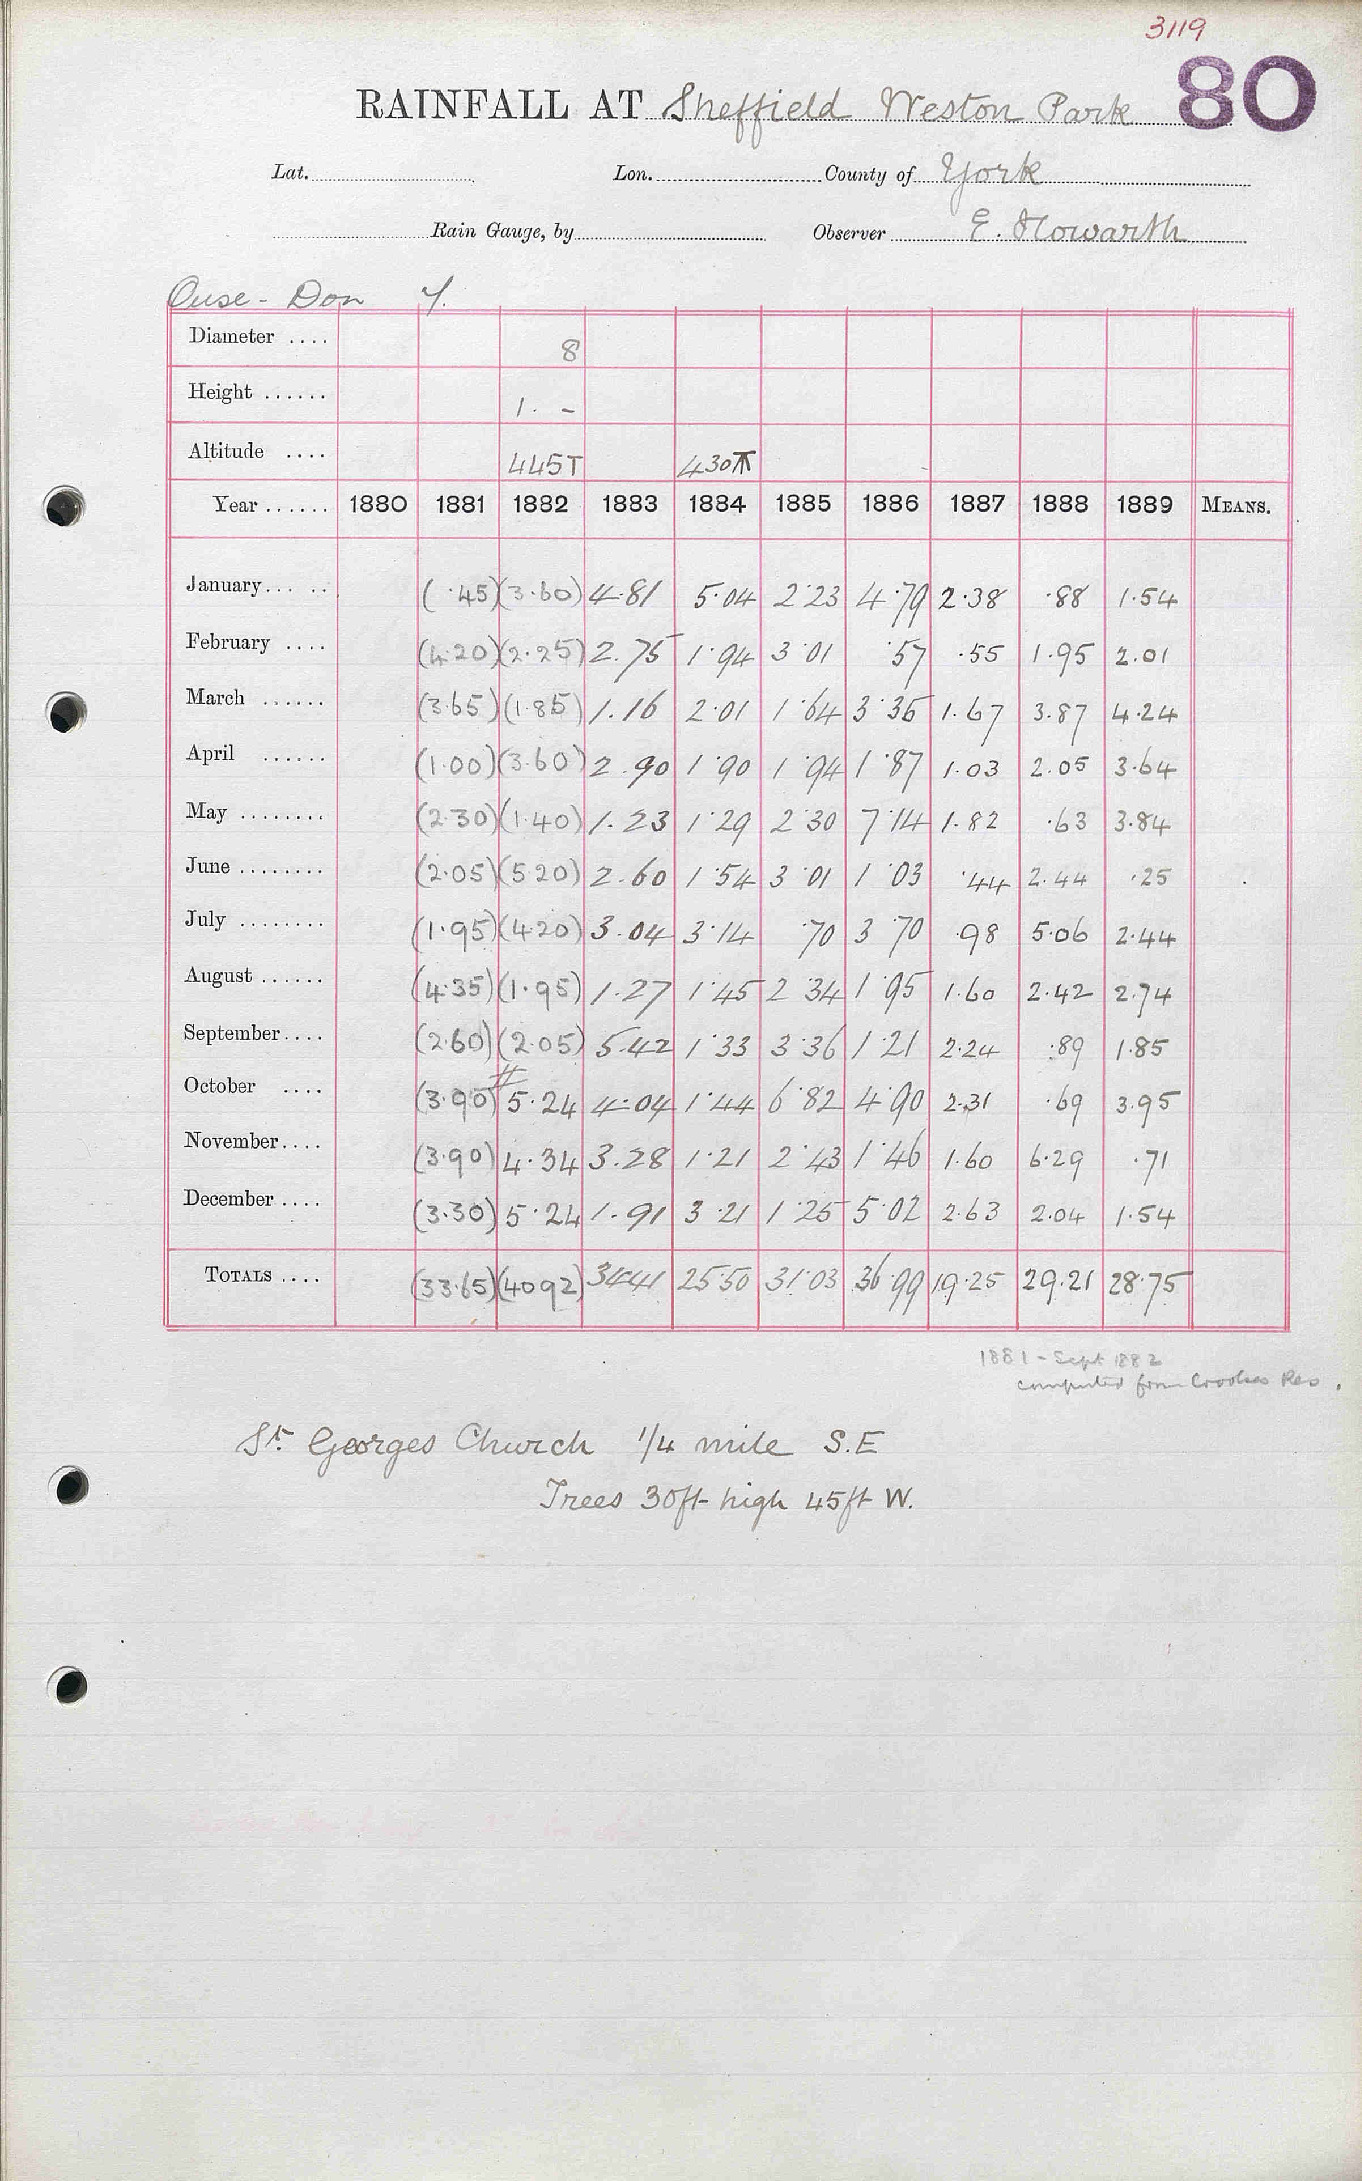 3119
80
RAINFALL AT Sheffield Weston Park
Lat. Lon. County of York
Rain Gauge, by Observer E. Howarth
Ouse - Don Y.
Diameter .... 8
Height ...... 1. -
Altitude .... 445T 430
Year ...... 1880 1881 1882 1883 1884 1885 1886 1887 1888 1889 MEANS.
January... .. (.45) (3.60) 4.81 5.04 2.23 4.79 2.38 .88 1.54
February .... (4.20) (2.25) 2.75 1.94 3.01 .57 .55 1.95 2.01
March ...... (3.65) (1.85) 1.16 2.01 1.64 3.35 1.67 3.87 4.24
April ...... (1.00) (3.60) 2.90 1.90 1.94 1.87 1.03 2.05 3.64
May ........ (2.30) (1.40) 1.23 1.29 2.30 7.14 1.82 .63 3.84
June ........ (2.05) (5.20) 2.60 1.54 3.01 1.03 .44 2.44 .25
July ........ (1.95) (4.20) 3.04 3.14 .70 3.70 .98 5.06 2.44
August ...... (4.35) (1.95) 1.27 1.45 2.34 1.95 1.60 2.42 2.74
September.... (2.60) (2.05) 5.42 1.33 3.36 1.21 2.24 .89 1.85
October .... (3.90) 5.24 4.04 1.44 6.82 4.90 2.31 .69 3.95
November.... (3.90) 4.34 3.28 1.21 2.43 1.46 1.60 6.29 .71
December .... (3.30) 5.24 1.91 3.21 1.25 5.02 2.63 2.04 1.54
TOTALS .... (33.65) (40.92) 34.41 25.50 31.03 36.99 19.25 29.21 28.75
1881 - Sept 1882
computed from Crookes Res.
St. Georges Church 1/4 mile S.E
Trees 30ft high 45ft W.